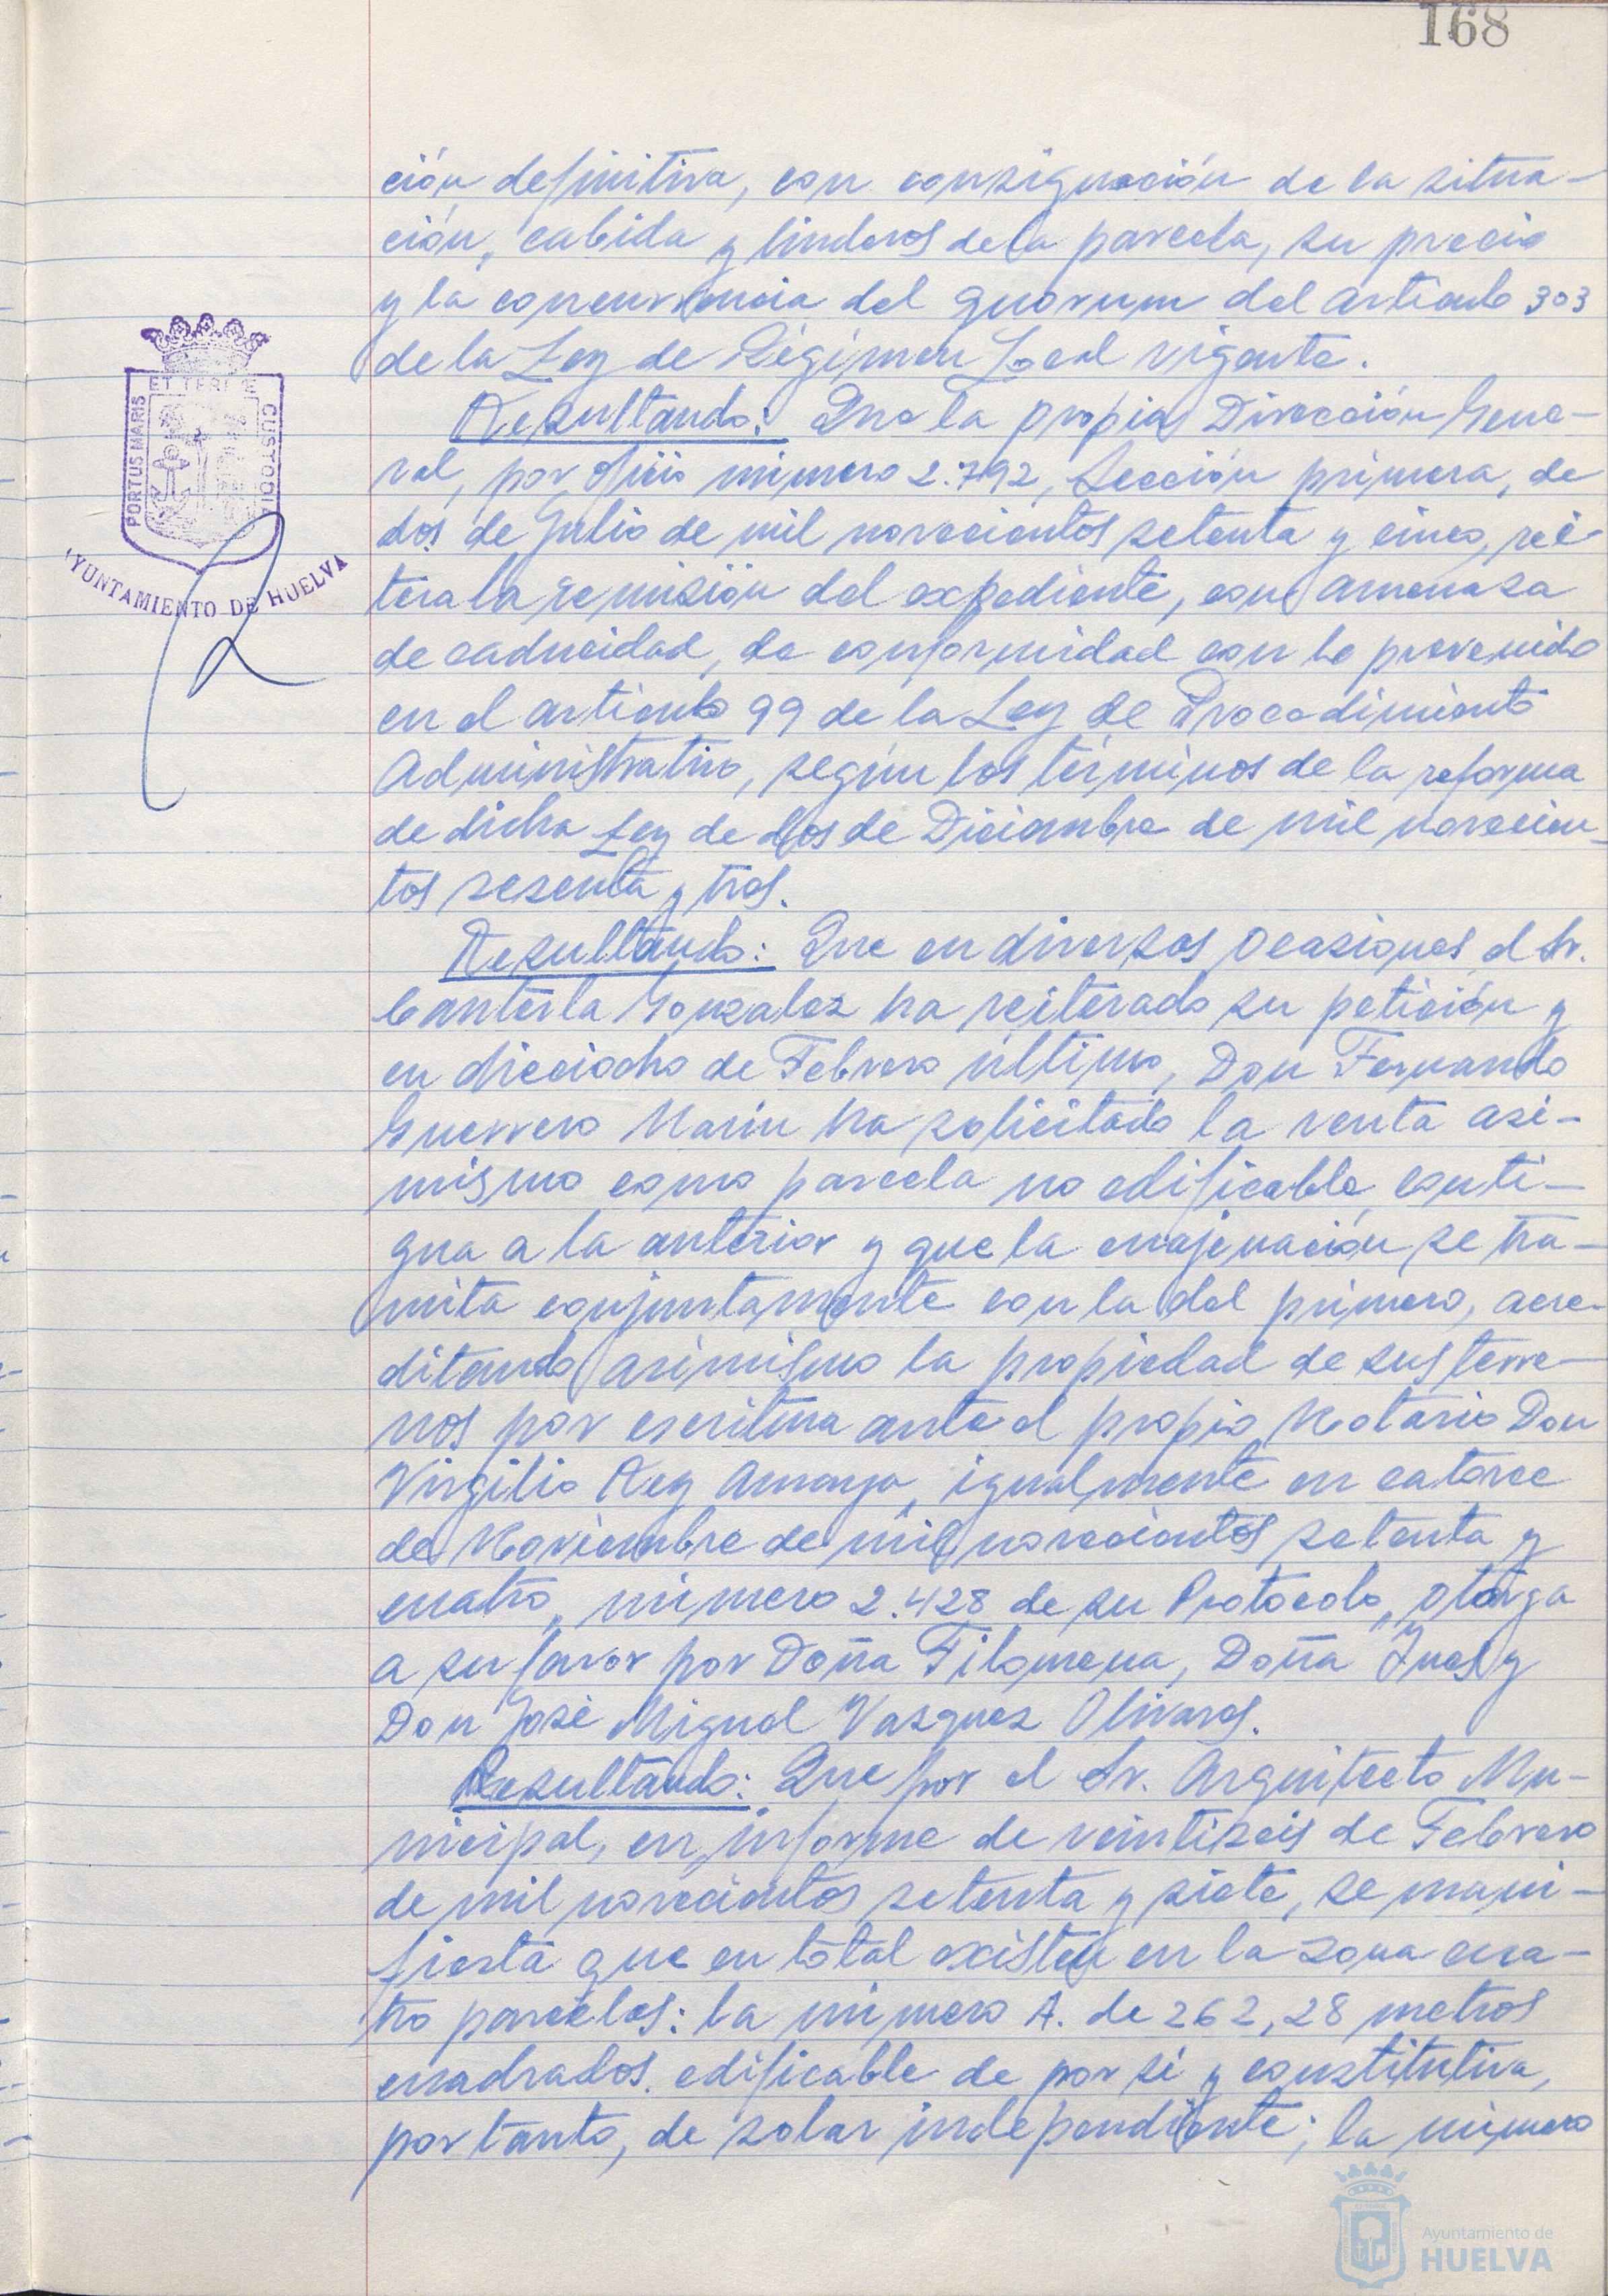 168
ción definitiva, con consignación de la situa-
ción, cabida y linderos de la parcela, su precio
y la concurrencia del quorum del articulo 303
de la Ley de Régimen Local vigente.
Resultando: Que la propia Dirección Gene-
ral, por oficio número 2.792, Sección primera, de
dos de Julio de mil novecientos setenta y cinco, rei-
tera la remisión del expediente, con amenaza
de caducidad, de conformidad con lo prevenido
en el articulo 99 de la Ley de Procedimiento
Administrativo, según los términos de la reforma
de dicha Ley de dos de Diciembre de mil novecien-
tos sesenta y tres.
Resultando: Que en diversas ocasiones el Sr.
Canterla Gonzalez ha reiterado su petición y
en dieciocho de Febrero último, Don Fernando
Guerrero Marin ha solicitado la venta asi-
mismo como parcela no edificable conti-
gua a la anterior y que la enajenación se tra-
mita conjuntamente con la del primero, acre-
ditando asimismo la propiedad de sus terre-
nos por escritura ante el propio Notario Don
Virgilio Rey Amaya, igualmente en catorce
de Noviembre de mil novecientos setenta y
cuatro, número 2.428 de su Protocolo, otorga
a su favor por Doña Filomena, Doña Ines y
Don José Miguel Vazquez Olivares.
Resultando: Que por el Sr. Arquitecto Mu-
nicipal, en informe de veintiseis de Febrero
de mil novecientos setenta y siete, se mani-
fiesta que en total existen en la zona cua-
tro parcelas: la número A. de 262,28 metros
cuadrados. edificable de por si y constitutiva,
por tanto, de solar independiente; la número
PORTUS MARIS ET TERRE CUSTODIA
AYUNTAMIENTO DE HUELVA
Ayuntamiento de
HUELVA